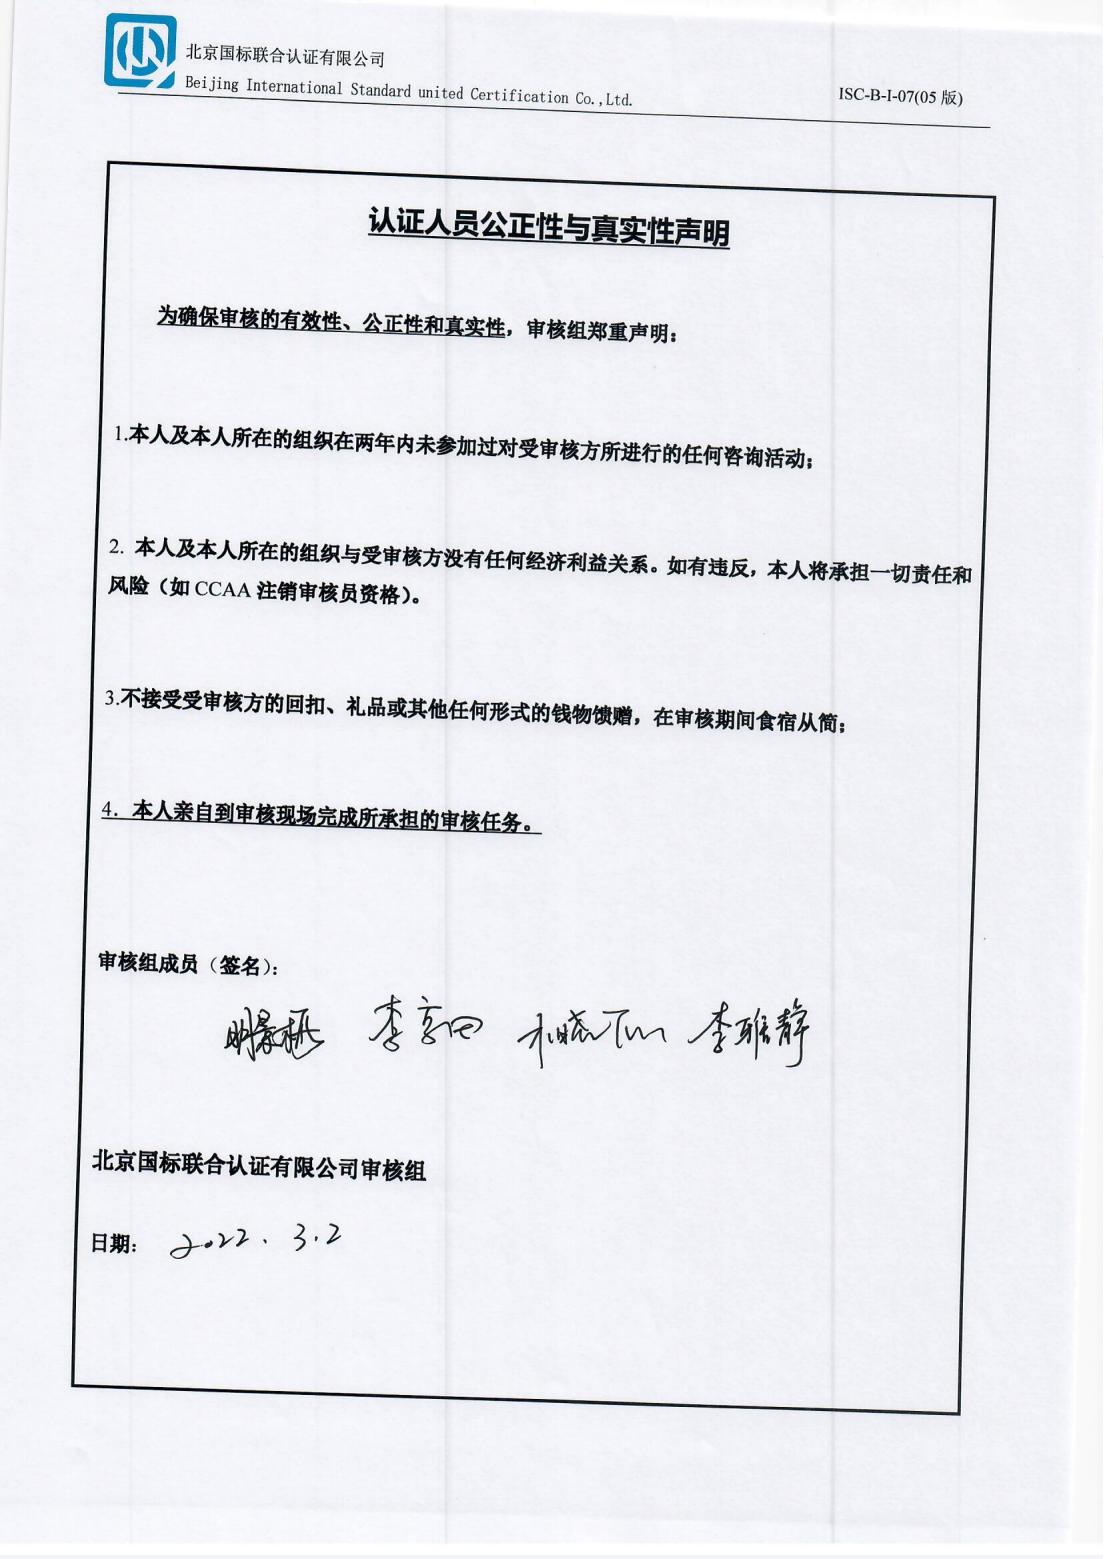 北京国标联合认证有限公司
Beijing International Standard united Certification Co.,Ltd.
ISC-B-I-07(05 版)
认证人员公正性与真实性声明
为确保审核的有效性、公正性和真实性，审核组郑重声明：
1.本人及本人所在的组织在两年内未参加过对受审核方所进行的任何咨询活动；
2. 本人及本人所在的组织与受审核方没有任何经济利益关系。如有违反，本人将承担一切责任和
风险（如 CCAA 注销审核员资格）。
3.不接受受审核方的回扣、礼品或其他任何形式的钱物馈赠，在审核期间食宿从简；
4．本人亲自到审核现场完成所承担的审核任务。
审核组成员（签名）：
李雅静
北京国标联合认证有限公司审核组
日期： 2022.3.2